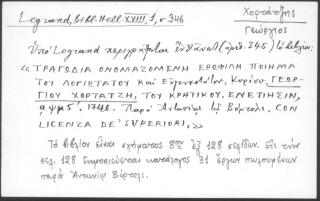 Legrand, Bibl. Hell. XVIII, 1, σ 346
Χορτάτζης
Γεώργιος
Ὑπὸ Legrand περιγράφεται ἐνθάδε (ἀριθ. 345) τὸ βιβλίον:
« ΤΡΑΓΩΔΙΑ ΟΝΟΜΑΖΟΜΕΝΗ ΕΡΩΦΙΛΗ ΠΟΙΗΜΑ
ΤΟΥ ΛΟΓΙΩΤΑΤΟΥ καὶ Εὐγενεστάτου, Κυρίου, ΓΕΩΡ-
ΓΙΟΥ ΧΟΡΤΑΤΖΗ, ΤΟΥ ΚΡΗΤΙΚΟΥ. ΕΝΕΤΙΗΣΙΝ,
Παρὰ Ἀντωνίῳ τῷ Βόρτολι. CON
LICENZA DE' SUPERIORI. »
Τὸ βιβλίον εἶναι σχήματος 8ον ἐξ 128 σελίδων. Εἰς τὴν
σελ. 128 δημοσιεύεται κατάλογος 31 ἔργων πωλουμένων
παρὰ Ἀντωνίῳ Βόρτολι.